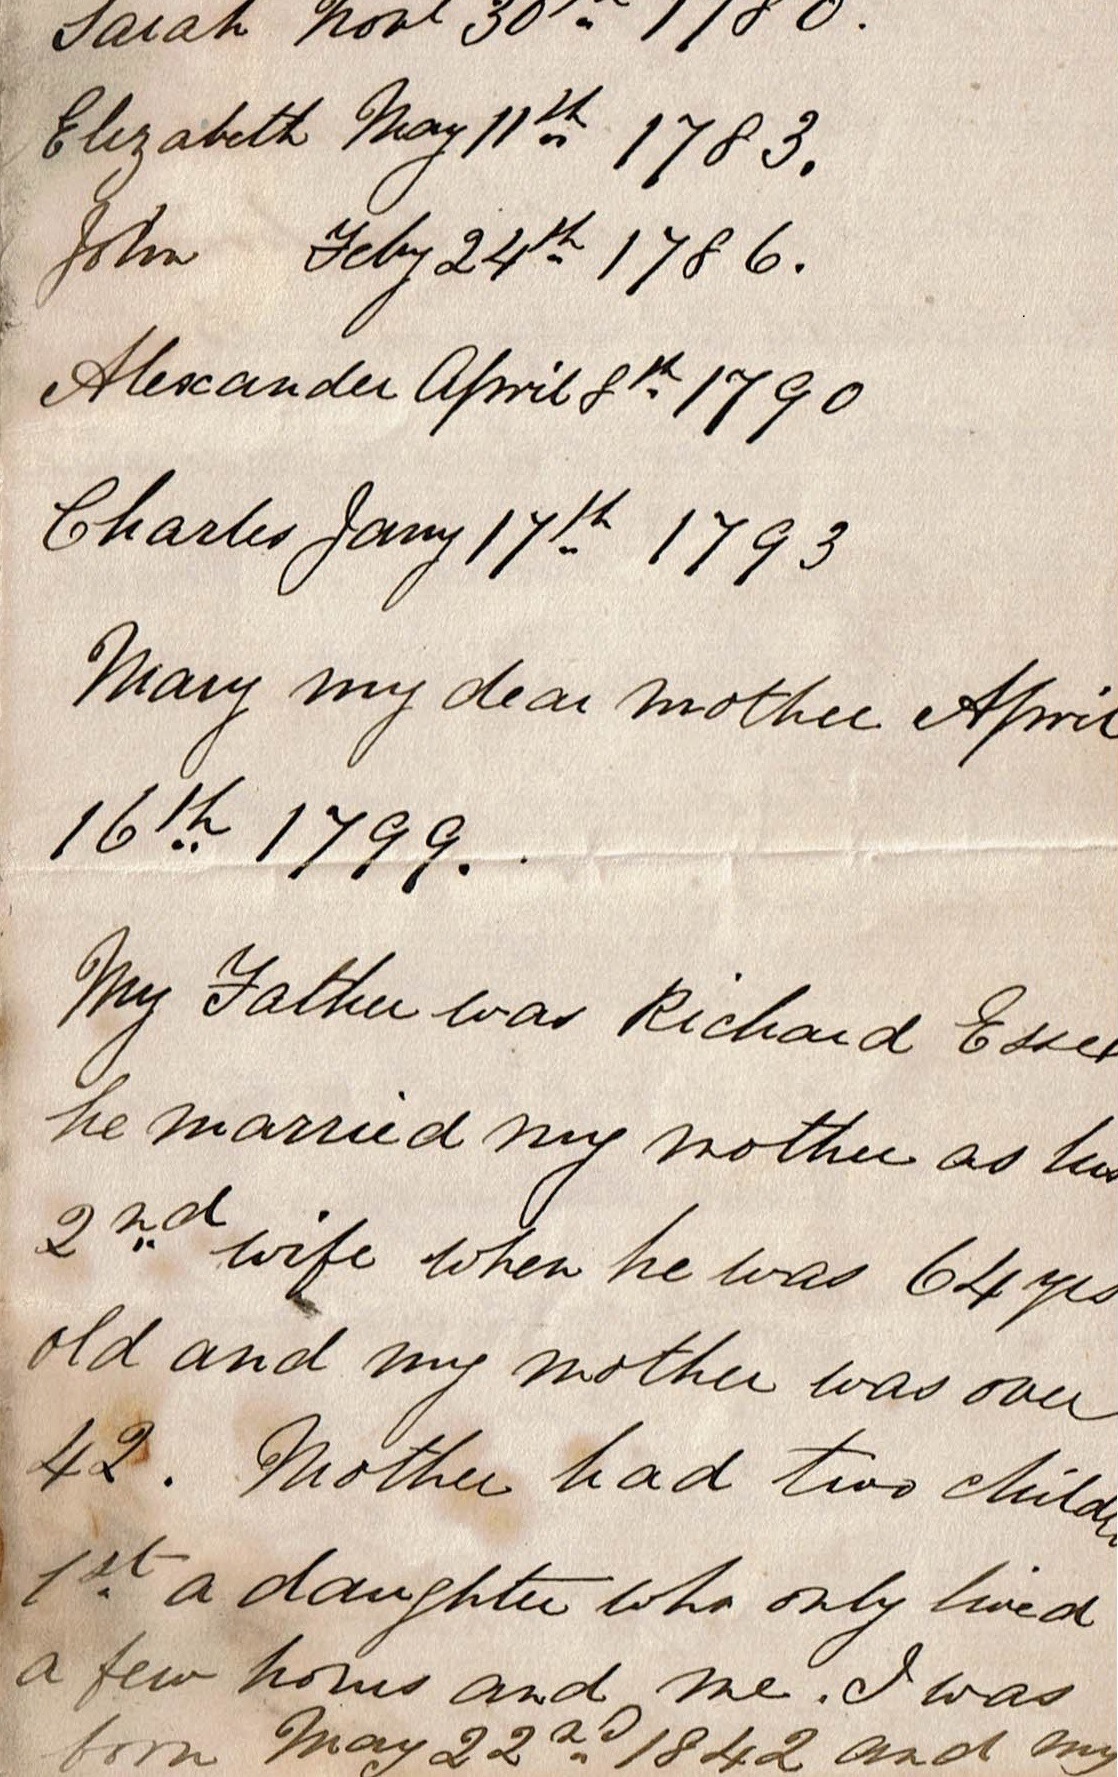 Sarah Novr 30th 1780.
Elizabeth May 11th 1783.
John Feby 24th 1786.
Alexander April 8th 1790
Charles Jany 17th 1793
Mary my dear mother April
16th 1799.
My Father was Richard Esse
he married my mother as his
2nd wife when he was 64 yrs
old and my mother was over
42. Mother had two child
1st a daughter who only lived
a few hours and me. I was
born May 22nd 1842 and my